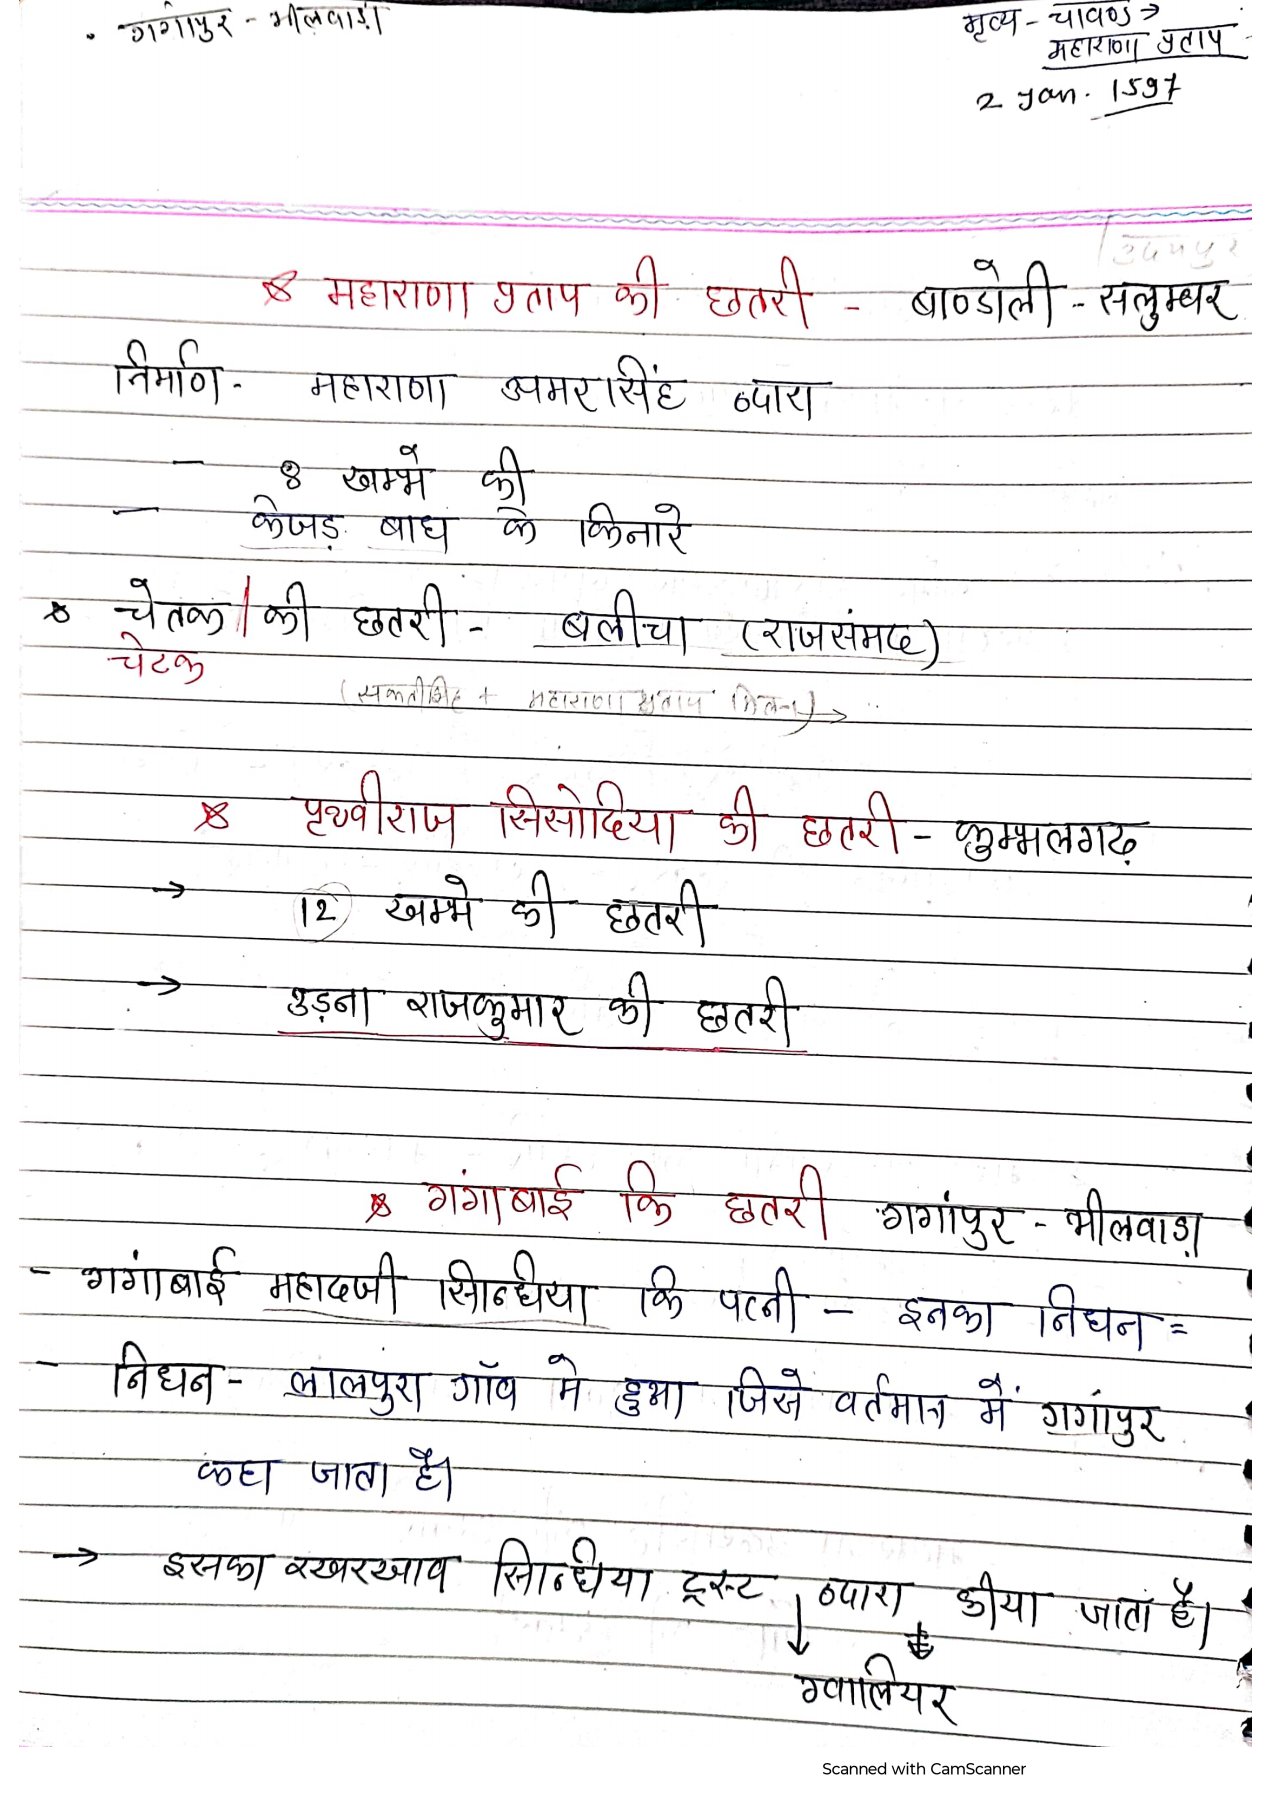 . गगांपुर - भीलवाड़ा
मृत्य - चावण्ड →
महाराणा प्रताप
2 Jan. 1597
उदयपुर
महाराणा प्रताप की छतरी - बाण्डोली - सलुम्बर
निर्माण - महाराणा अमरसिंह व्दारा
- 8 खम्भे की
- केजड़ बाध के किनारे
चेतक / की छतरी - बलीचा (राजसंमद)
चेटक
(सक्तीसिंह + महाराणा प्रताप मिलन) →
पृथ्वीराज सिसोदिया की छतरी - कुम्भलगढ़
→ 12 खम्भे की छतरी
→ उड़ना राजकुमार की छतरी
गंगाबाई कि छतरी गगांपुर - भीलवाड़ा
- गगांबाई महादजी सिन्धिया कि पत्नी - इनका निधन =
- निधन - लालपुरा गॉव मे हुआ जिसे वर्तमान में गगांपुर
कहा जाता है।
→ इसका रखरखाव सिन्धिया ट्रस्ट व्दारा कीया जाता है।
ग्वालियर
Scanned with CamScanner